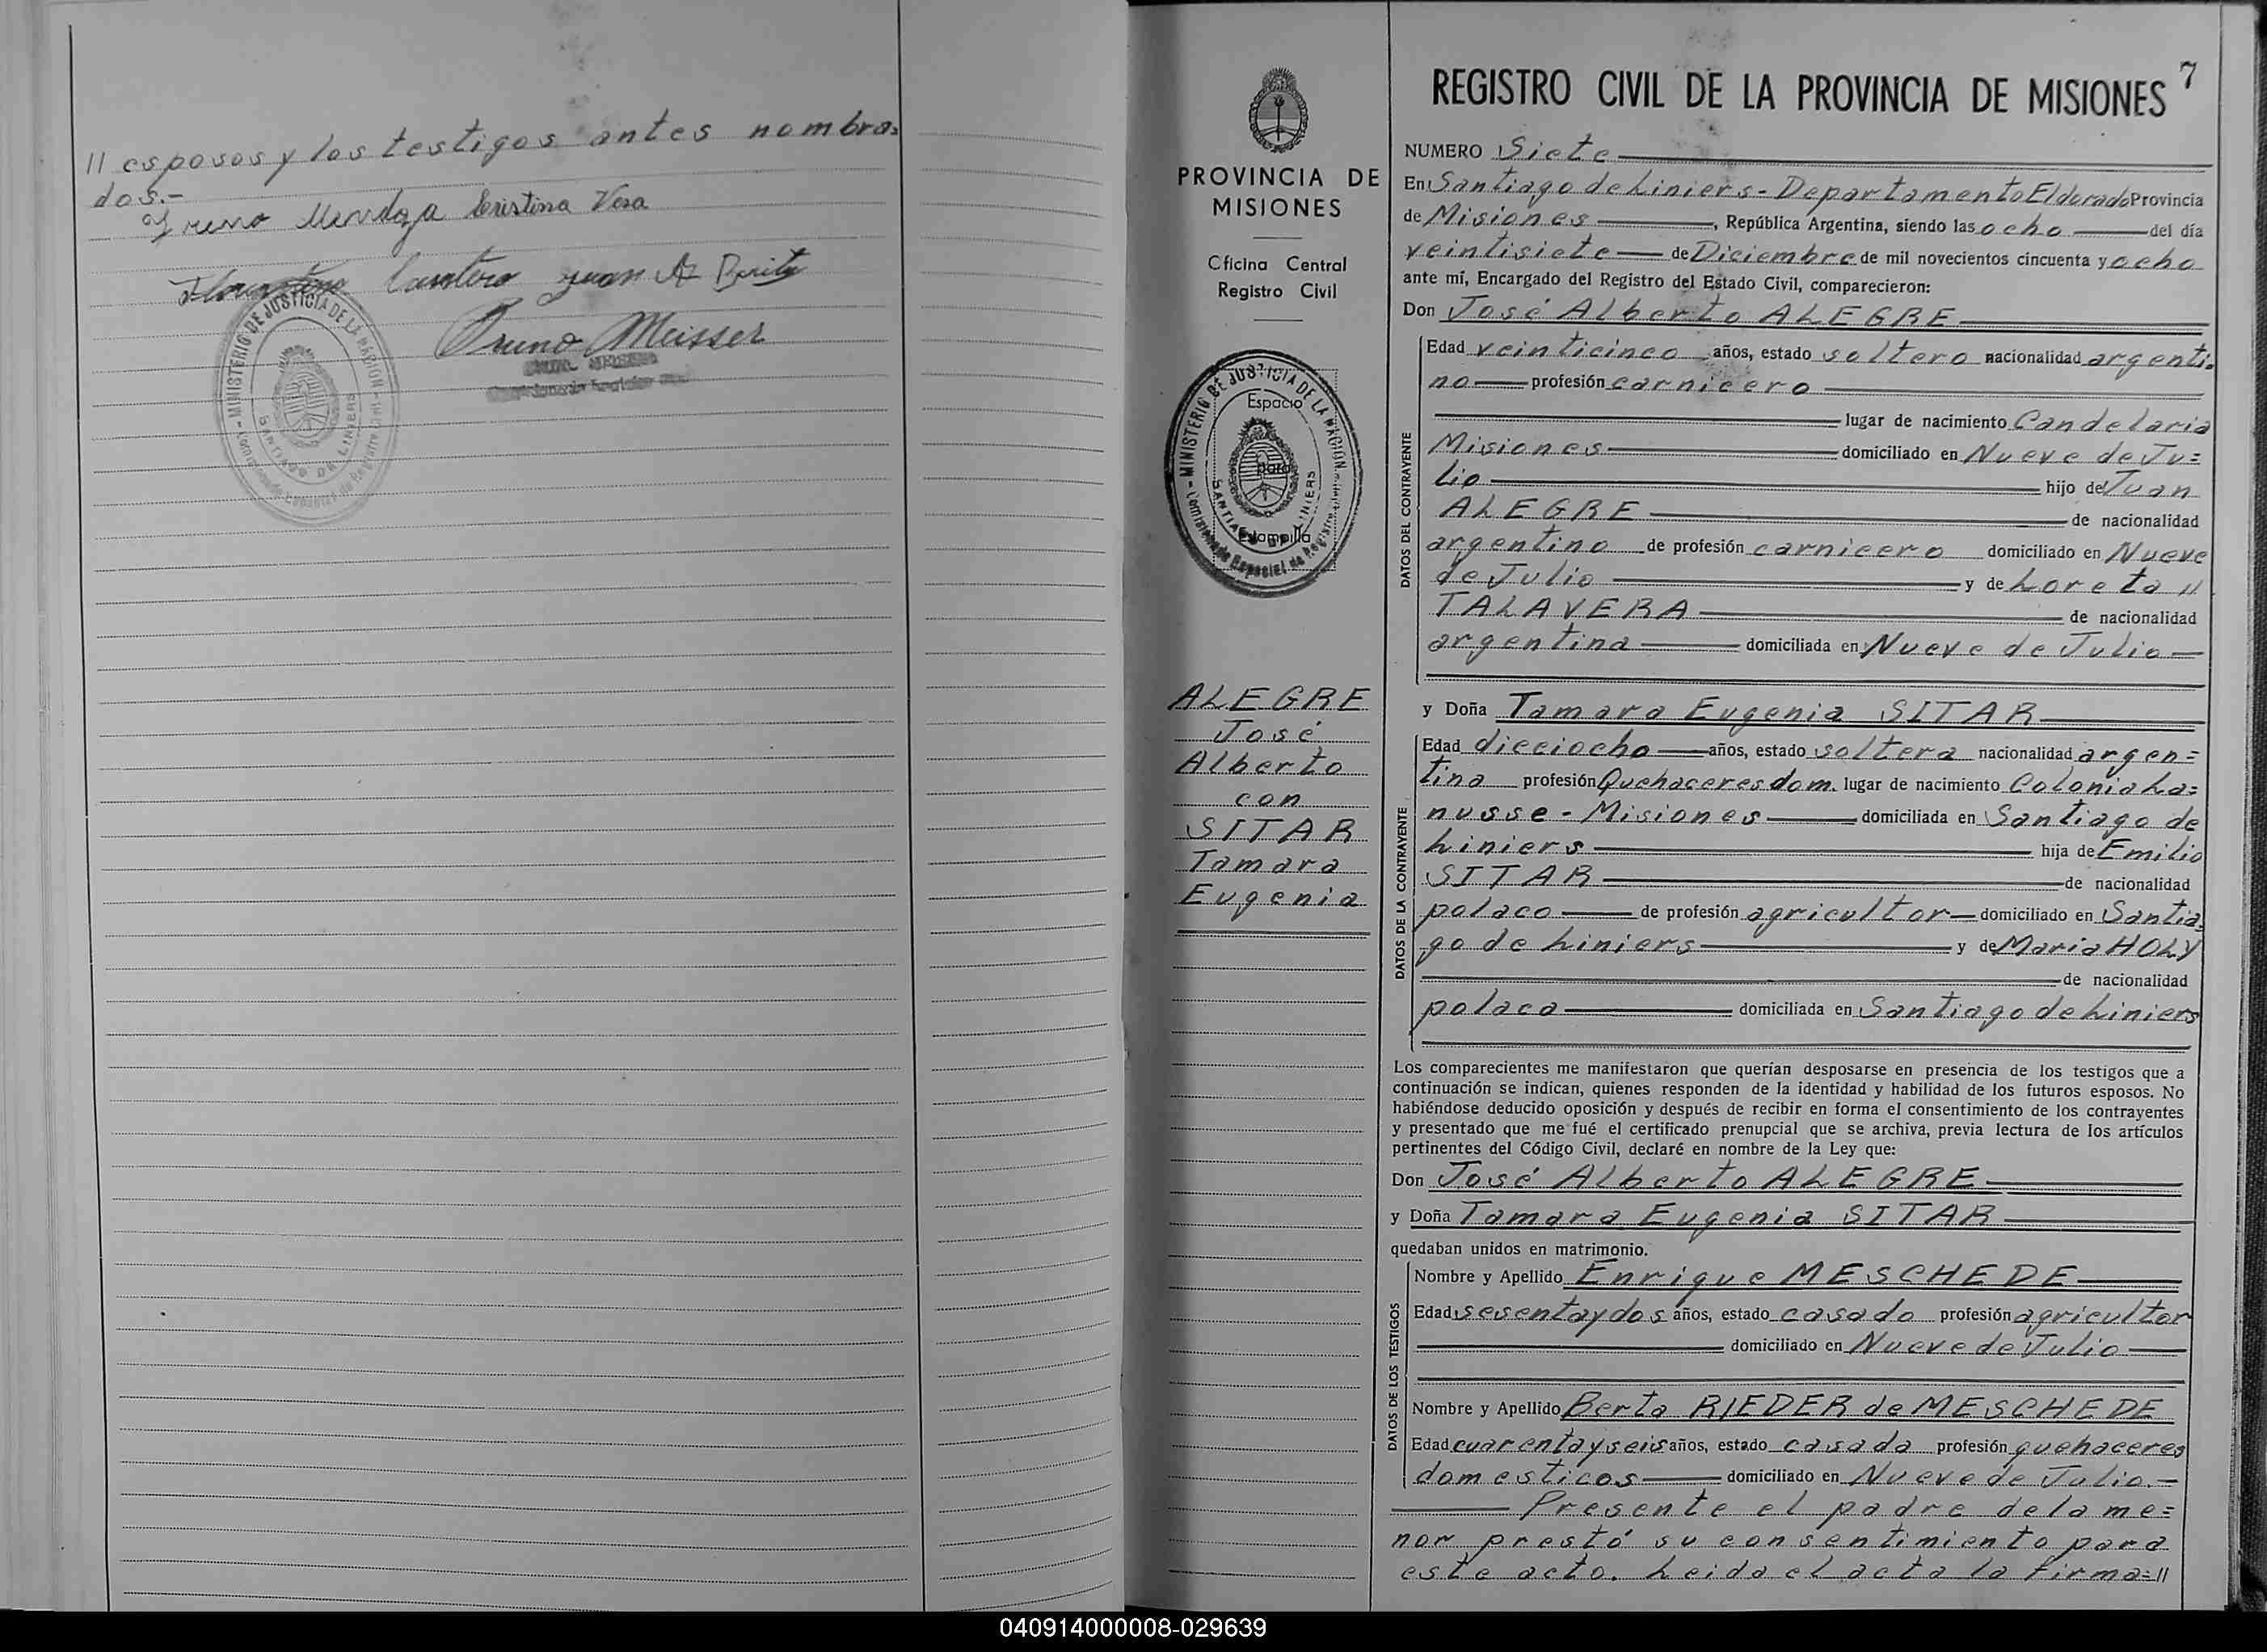 // esposos y los testigos antes nombra=
dos.-
Mendoza Cristina Vera
Cantero Juan A
Bruno Meisser
MINISTERIO DE JUSTICIA DE LA NACION
SANTIAGO DE LINIERS
PROVINCIA DE
MISIONES
Oficina Central
Registro Civil
MINISTERIO DE JUSTICIA DE LA NACION
Comisionado Especial de Registro
SANTIAGO DE LINIERS
Espacio
para
Estampilla
ALEGRE
José
Alberto
con
SITAR
Tamara
Eugenia
REGISTRO CIVIL DE LA PROVINCIA DE MISIONES 7
NUMERO Siete
En Santiago de Liniers - Departamento Eldorado Provincia
de Misiones, República Argentina, siendo las ocho del día
veintisiete de Diciembre de mil novecientos cincuenta y ocho
ante mí, Encargado del Registro del Estado Civil, comparecieron:
Don José Alberto ALEGRE
DATOS DEL CONTRAYENTE
Edad veinticinco años, estado soltero nacionalidad argenti=
no profesión carnicero
lugar de nacimiento Candelaria
Misiones domiciliado en Nueve de Ju=
lio hijo de Juan
ALEGRE de nacionalidad
argentino de profesión carnicero domiciliado en Nueve
de Julio y de Loreta //
TALAVERA de nacionalidad
argentina domiciliada en Nueve de Julio
y Doña Tamara Eugenia SITAR
DATOS DE LA CONTRAYENTE
Edad dieciocho años, estado soltera nacionalidad argen=
tina profesión Quehaceres dom. lugar de nacimiento Colonia La=
nusse - Misiones domiciliada en Santiago de
Liniers hija de Emilio
SITAR de nacionalidad
polaco de profesión agricultor domiciliado en Santia=
go de Liniers y de Maria HOLY
de nacionalidad
polaca domiciliada en Santiago de Liniers
Los comparecientes me manifestaron que querían desposarse en presencia de los testigos que a
continuación se indican, quienes responden de la identidad y habilidad de los futuros esposos. No
habiéndose deducido oposición y después de recibir en forma el consentimiento de los contrayentes
y presentado que me fué el certificado prenupcial que se archiva, previa lectura de los artículos
pertinentes del Código Civil, declaré en nombre de la Ley que:
Don José Alberto ALEGRE
y Doña Tamara Eugenia SITAR
quedaban unidos en matrimonio.
DATOS DE LOS TESTIGOS
Nombre y Apellido Enrique MESCHEDE
Edad sesenta y dos años, estado casado profesión agricultor
domiciliado en Nueve de Julio
Nombre y Apellido Berta RIEDER de MESCHEDE
Edad cuarenta y seis años, estado casada profesión quehaceres
domesticos domiciliado en Nueve de Julio.-
Presente el padre de la me=
nor prestó su consentimiento para
este acto. Leida el acta la firma= //
040914000008-029639